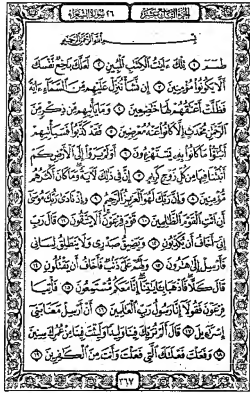 الجزء التاسع عشر ٢٦ سورة الشعراء
بِسْمِ اللَّهِ الرَّحْمَٰنِ الرَّحِيمِ
طسٓمٓ ١ تِلْكَ ءَايَٰتُ الْكِتَٰبِ الْمُبِينِ ٢ لَعَلَّكَ بَٰخِعٌ نَّفْسَكَ
أَلَّا يَكُونُوا مُؤْمِنِينَ ٣ إِن نَّشَأْ نُنَزِّلْ عَلَيْهِم مِّنَ السَّمَآءِ ءَايَةً
فَظَلَّتْ أَعْنَٰقُهُمْ لَهَا خَٰضِعِينَ ٤ وَمَا يَأْتِيهِم مِّن ذِكْرٍ مِّنَ
الرَّحْمَٰنِ مُحْدَثٍ إِلَّا كَانُوا عَنْهُ مُعْرِضِينَ ٥ فَقَدْ كَذَّبُوا فَسَيَأْتِيهِمْ
أَنۢبَٰٓؤُا مَا كَانُوا بِهِ يَسْتَهْزِءُونَ ٦ أَوَلَمْ يَرَوْا إِلَى الْأَرْضِ كَمْ
أَنۢبَتْنَا فِيهَا مِن كُلِّ زَوْجٍ كَرِيمٍ ٧ إِنَّ فِي ذَٰلِكَ لَءَايَةً وَمَا كَانَ أَكْثَرُهُم
مُّؤْمِنِينَ ٨ وَإِنَّ رَبَّكَ لَهُوَ الْعَزِيزُ الرَّحِيمُ ٩ وَإِذْ نَادَىٰ رَبُّكَ مُوسَىٰٓ
أَنِ ائْتِ الْقَوْمَ الظَّٰلِمِينَ ١٠ قَوْمَ فِرْعَوْنَ أَلَا يَتَّقُونَ ١١ قَالَ رَبِّ
إِنِّيٓ أَخَافُ أَن يُكَذِّبُونِ ١٢ وَيَضِيقُ صَدْرِي وَلَا يَنطَلِقُ لِسَانِي
فَأَرْسِلْ إِلَىٰ هَٰرُونَ ١٣ وَلَهُمْ عَلَيَّ ذَنۢبٌ فَأَخَافُ أَن يَقْتُلُونِ ١٤
قَالَ كَلَّا فَاذْهَبَا بِـَٔايَٰتِنَآ إِنَّا مَعَكُم مُّسْتَمِعُونَ ١٥ فَأْتِيَا
فِرْعَوْنَ فَقُولَآ إِنَّا رَسُولُ رَبِّ الْعَٰلَمِينَ ١٦ أَنْ أَرْسِلْ مَعَنَا بَنِيٓ
إِسْرَٰٓءِيلَ ١٧ قَالَ أَلَمْ نُرَبِّكَ فِينَا وَلِيدًا وَلَبِثْتَ فِينَا مِنْ عُمُرِكَ سِنِينَ
١٨ وَفَعَلْتَ فَعْلَتَكَ الَّتِي فَعَلْتَ وَأَنتَ مِنَ الْكَٰفِرِينَ ١٩
٣٦٧